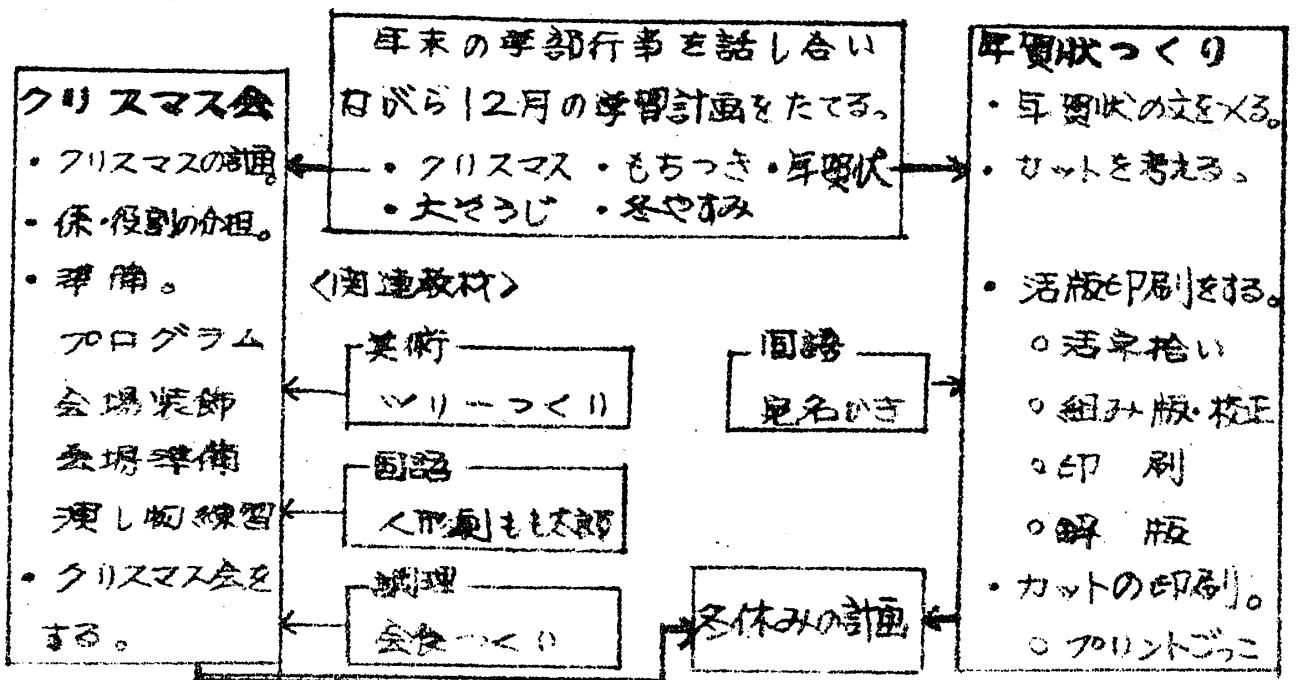 年末の学部行事を話し合い
ながら12月の学習計画をたてる。
・クリスマス ・もちつき ・年賀状
・大そうじ ・冬やすみ
クリスマス会
・クリスマスの計画。
・係・役割の分担。
・準備。
プログラム
会場装飾
会場準備
演し物練習
・クリスマス会を
する。
〈関連教材〉
美術
ツリーつくり
国語
人形劇もも太郎
調理
会食つくり
国語
宛名かき
冬休みの計画
年賀状つくり
・年賀状の文をつくる。
・カットを考える。
・活版印刷をする。
○活字拾い
○組み版・校正
○印 刷
○解 版
・カットの印刷。
○プリントごっこ